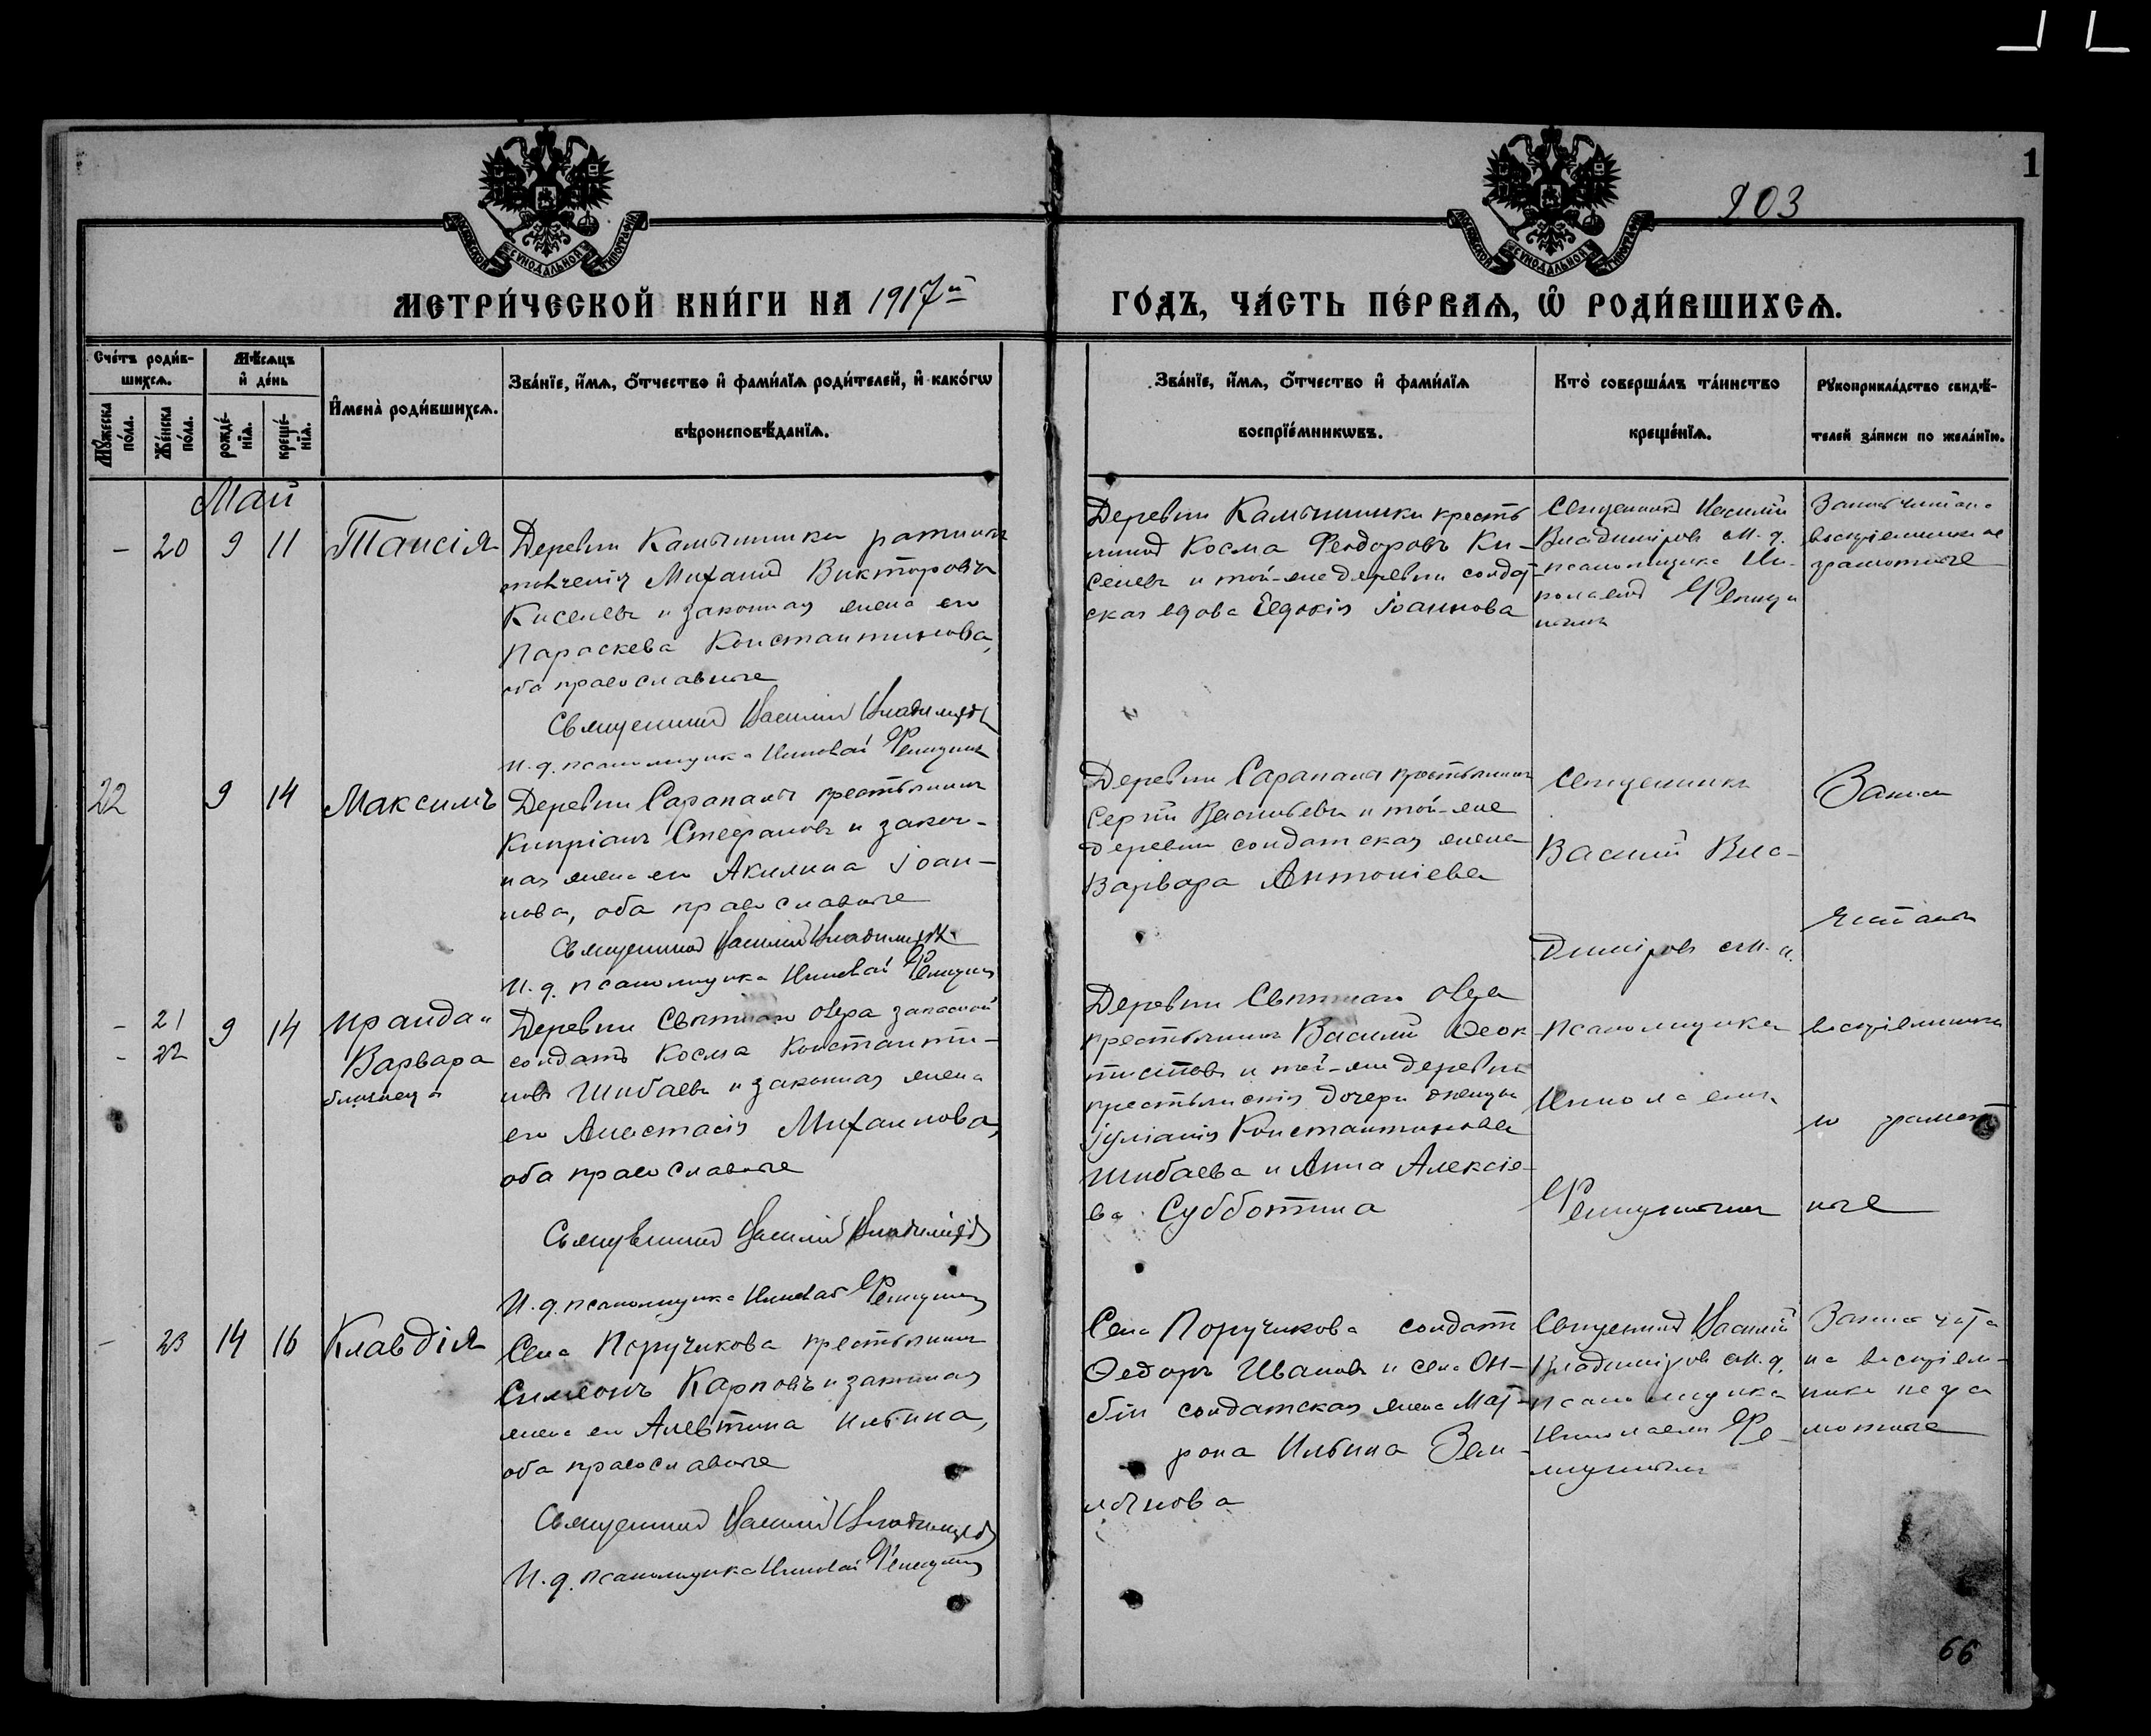 1
903
МОСКОВСКОЙ СѴНОДАЛЬНОЙ ТИПОГРАФІИ
МОСКОВСКОЙ СѴНОДАЛЬНОЙ ТИПОГРАФІИ
МЕТРИ́ЧЕСКОЙ КНИ́ГИ НА 1917й
ГО́ДЪ, ЧА́СТЬ ПЕ́РВАѦ, Ѡ҆ РОДИ́ВШИХСѦ.
Сче́тъ роди́в-
шихсѧ.
Мꙋ́жеска
по́ла.
Же́нска
по́ла.
Мѣ́сѧцъ
и҆ де́нь
рожде́-
нїѧ.
креще́-
нїѧ.
И҆мена̀ роди́вшихсѧ.
Зва́нїе, и҆́мѧ, ѻ҆́тчество и҆ фами́лїѧ роди́телей, и҆ како́гѡ
вѣроисповѣ́данїѧ.
Зва́нїе, и҆́мѧ, ѻ҆́тчество и҆ фами́лїѧ
воспрїе́мникѡвъ.
Кто̀ соверша́лъ та́инство
креще́нїѧ.
Рꙋкоприкла́дство свидѣ́-
телей за́писи по жела́нїю.
Май
- 20 9 11 Таисія
Деревни Камышинки ратникъ
ополченія Михаилъ Викторовъ
Киселевъ и законная жена его
Параскева Константинова,
оба православные
Священникъ Василій Владиміровъ
И. д. псаломщика Николай
Деревни Камышинки кресть
янинъ Косма Феодоровъ Ки-
селевъ и той-же деревни солдат
ская вдова Евдокія Іоаннова
Священникъ Василій
Владиміровъ и. д.
псаломщика Ни-
колаемъ
Запись читана
воспріемники не
грамотные
22 9 14 Максимъ
Деревни Сарапала крестьянинъ
Кипріанъ Стефановъ и закон-
ная жена его Акилина Іоан-
нова, оба православные
Священникъ Василій Владиміровъ
И. д. псаломщика Николай
Деревни Сарапала крестьянинъ
Сергій Васильевъ и той-же
деревни солдатская жена
Варвара Антоніева
Священникъ
Василій Вла-
диміровъ и. д.
Запись
читана
- 21 9 14 Ираида и
- 22 Варвара
близнецы
Деревни озера запасной
солдатъ Косма Константи-
новъ Шибаевъ и законная жена
его Анастасія Михаилова,
оба православные
Священникъ Василій Владиміровъ
И. д. псаломщика Николай
Деревни озера
крестьянинъ Василій Феок
тистовъ и той-же деревни
крестьянскія дочери девицы
Іуліанія Константинова
Шибаева и Анна Алексіе-
ва Субботина
псаломщика
Николаемъ
воспріемники
не грамот
ные
- 23 14 16 Клавдія
Села Поручикова крестьянинъ
Симеонъ Карповъ и законная
жена его Алевтина Ильина,
оба православные
Священникъ Василій Владиміровъ
И. д. псаломщика Николай
Села Поручикова солдатъ
Ѳедоръ Ивановъ и села Он-
біи солдатская жена Мат-
рона Ильина Зем-
лянова
Священникъ Василій
Владиміровъ и. д.
псаломщика
Николаемъ
Запись чита
на воспріем-
ники негра
мотные
66